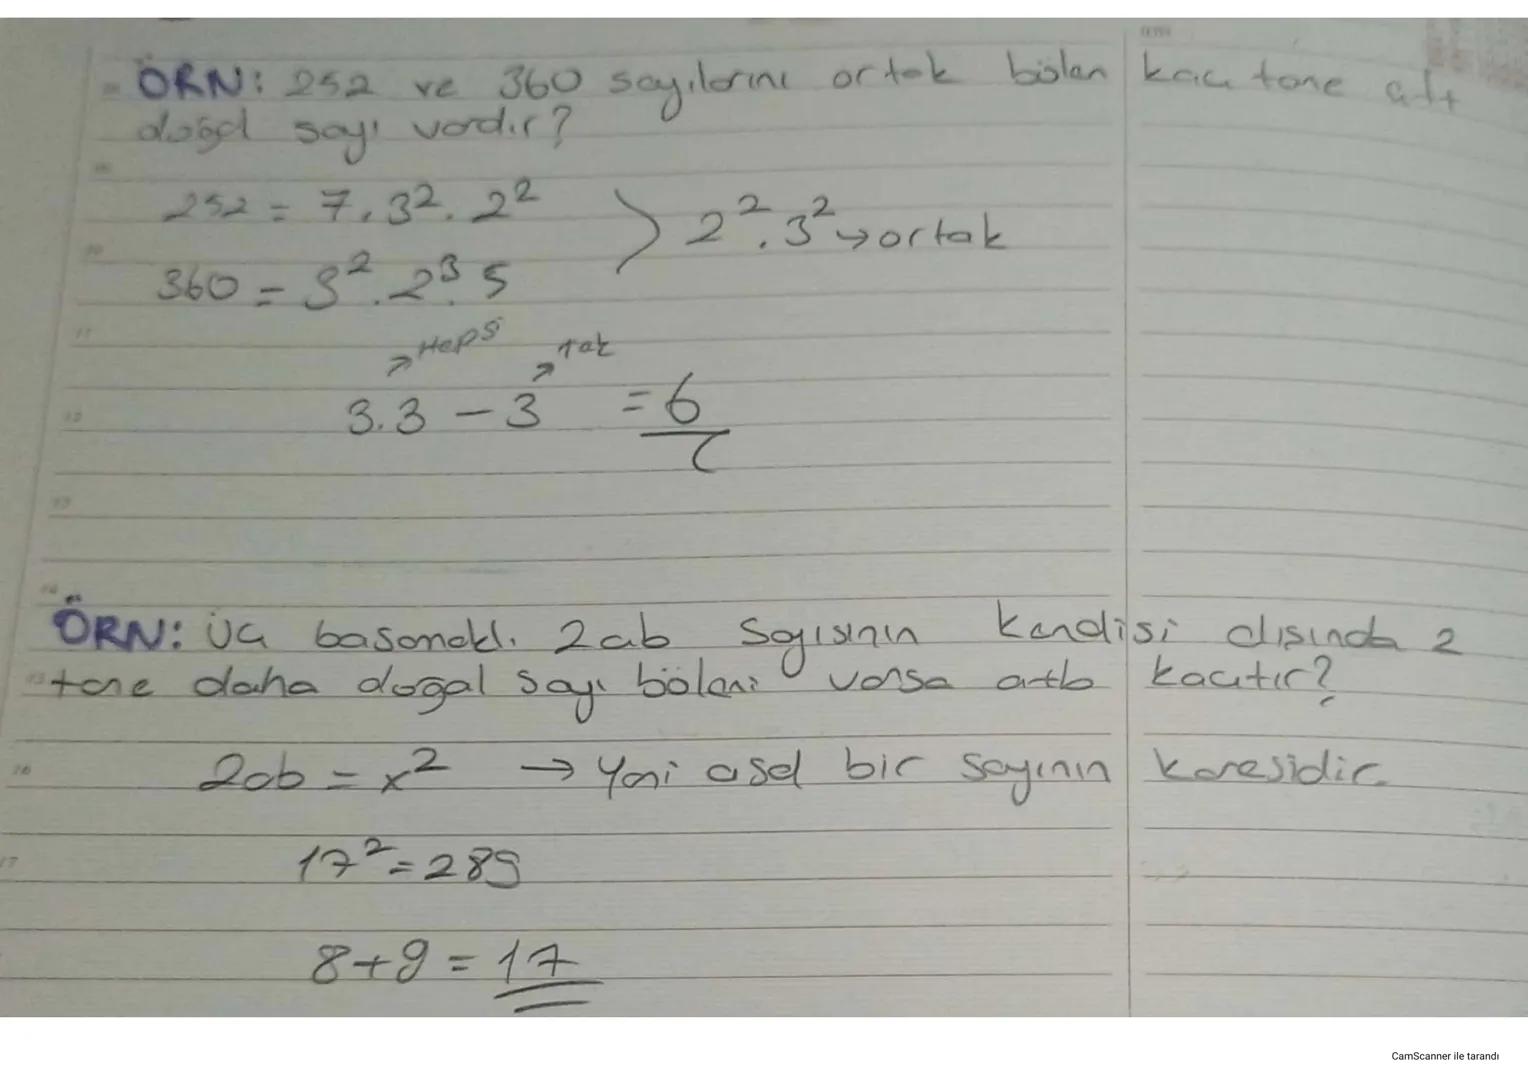 ÖRN: 252 ve 360 sayılarını ortak bölen kaç tane çift
doğal sayı vardır?
252 = 7.3².2²
2².3² → ortak
360 = 3².2³.5
Hepsi
Tek
3.3 - 3 = 6
ÖRN: Üç basamaklı 2ab sayısının kendisi dışında 2
tane daha doğal sayı böleni varsa a+b kaçtır?
2ab = x² → Yani asal bir sayının karesidir.
17² = 289
8+9 = 17
CamScanner ile tarandı